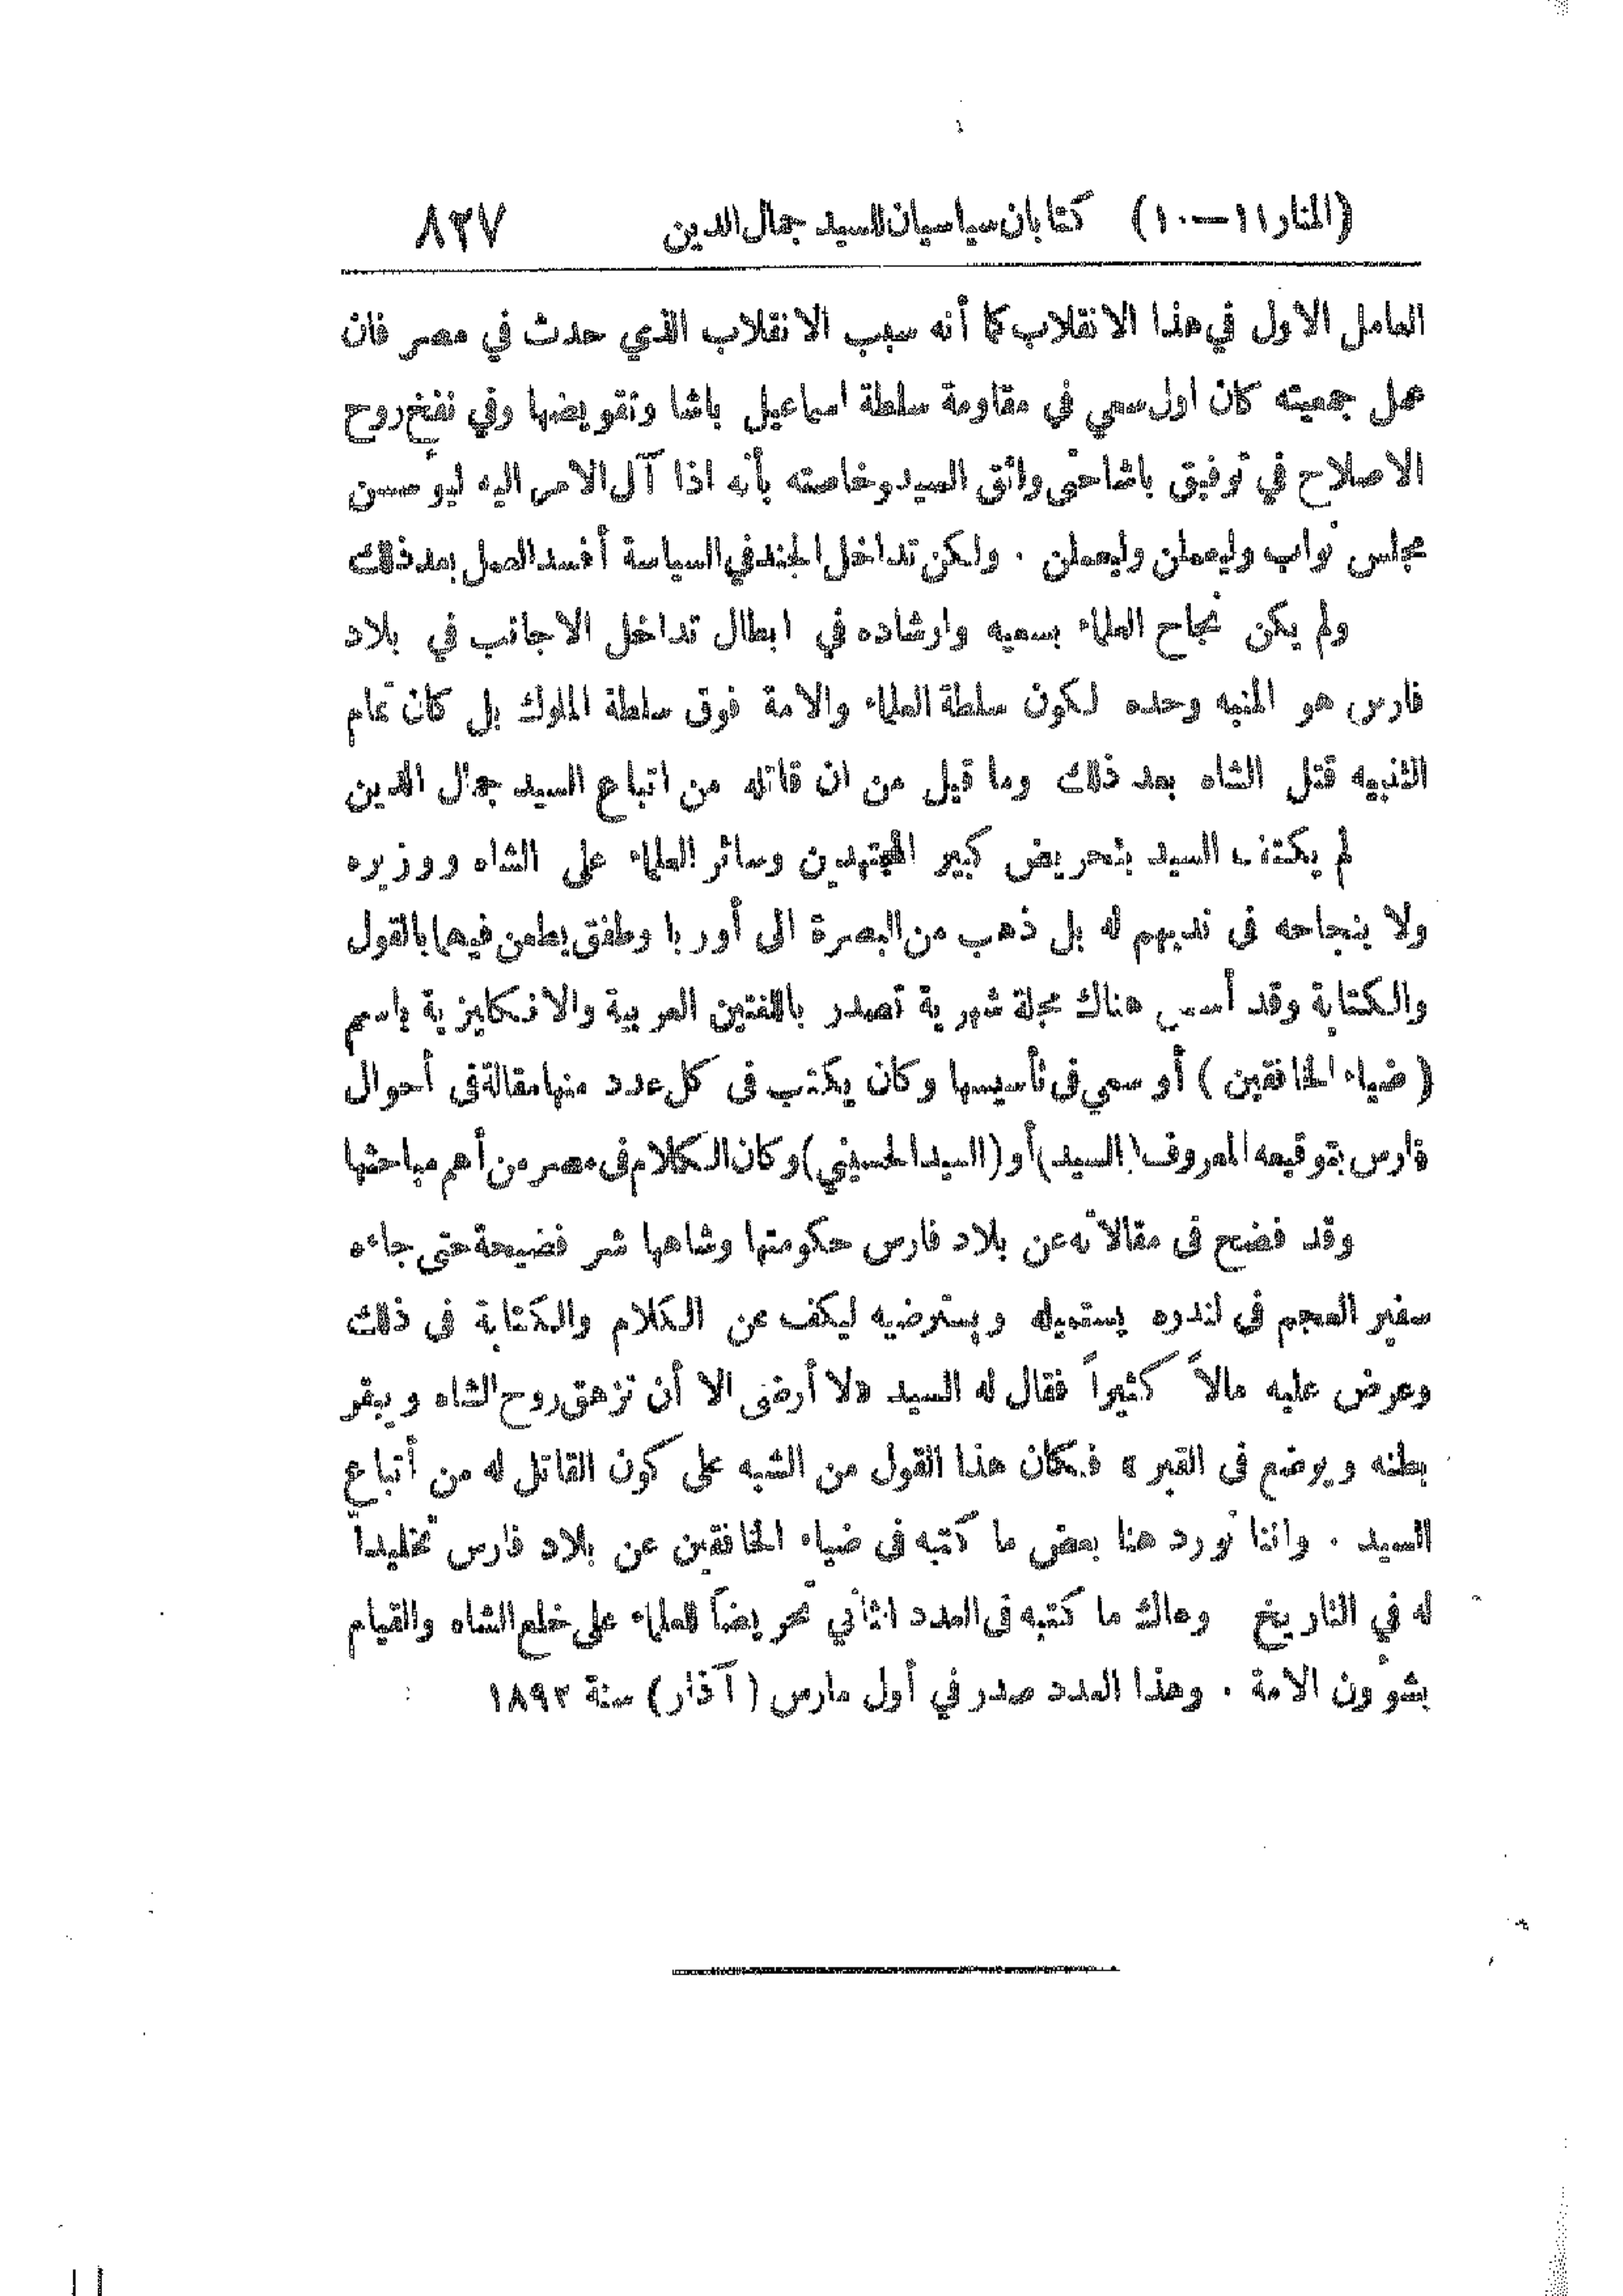 (المنار ١١—١٠) كتابان سياسيان للسيد جمال الدين ٨٢٧
العامل الاول في هذا الانقلاب كما أنه سبب الانقلاب الذي حدث في مصر فان
عمل جمعيته كان اول سعي في مقاومة سلطة اسماعيل باشا وتقويضها وفي نفخ روح
الاصلاح في توفيق باشا حتى واثق السيد وخاصته بأنه اذا آل الامر اليه ليؤسسن
مجلس نواب وليعملن وليعملن . ولكن تداخل الجند في السياسة أفسد العمل بعد ذلك
ولم يكن نجاح العلماء بسعيه وارشاده في ابطال تداخل الاجانب في بلاد
فارس هو المنبه وحده لكون سلطة العلماء والامة فوق سلطة الملوك بل كان تمام
التنبيه قتل الشاه بعد ذلك وما قيل من ان قاتله من اتباع السيد جمال الدين
لم يكتف السيد بتحريض كبير المجتهدين وسائر العلماء على الشاه ووزيره
ولا بنجاحه في ندبهم له بل ذهب من البصرة الى أوربا وطفق يطعن فيهما بالقول
والكتابة وقد أسس هناك مجلة شهرية تصدر باللغتين العربية والانكليزية باسم
( ضياء الخافقين ) أو سعي في تأسيسها وكان يكتب في كل عدد منها مقالة في أحوال
فارس بتوقيعه المعروف (السيد) أو (السيد الحسيني) وكان الكلام في مصر من أهم مباحثها
وقد فضح في مقالاته عن بلاد فارس حكومتها وشاهها شر فضيحة حتى جاءه
سفير العجم في لندره يستميله ويسترضيه ليكف عن الكلام والكتابة في ذلك
وعرض عليه مالاً كثيراً فقال له السيد «لا أرضى الا أن تزهق روح الشاه ويبقر
بطنه ويوضع في القبر» فكان هذا القول من الشبه على كون القاتل له من أتباع
السيد . واننا نورد هنا بعض ما كتبه في ضياء الخافقين عن بلاد فارس تخليداً
له في التاريخ وهاك ما كتبه في العدد الثاني تحريضاً للعلماء على خلع الشاه والقيام
بشؤون الامة . وهذا العدد صدر في أول مارس ( آذار ) سنة ١٨٩٢